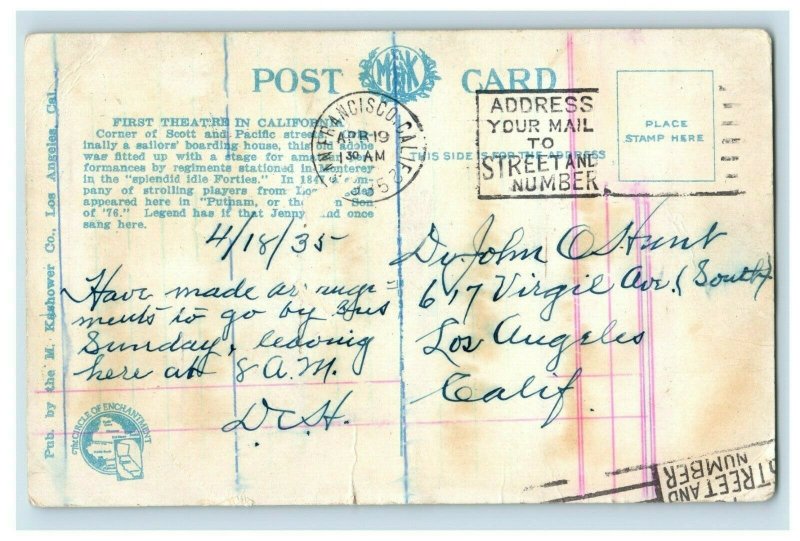 POST CARD
MKK
FIRST THEATRE IN CALIFORNIA
Corner of Scott and Pacific streets.
inally a sailors' boarding house, this old adobe
was fitted up with a stage for
formances by regiments stationed in Monterey
in the "splendid idle Forties." In
pany of strolling players from
appeared here in "Putnam, or the Son
of '76." Legend has it that Jenny nd once
sang here.
SAN FRANCISCO, CALIF.
APR 19
1 30 AM
1935
ADDRESS
YOUR MAIL
TO
STREET AND
NUMBER
PLACE
STAMP HERE
THIS SIDE IS FOR THE ADDRESS
4/18/35
Have made arrange
ments to go by Bus
Sunday, leaving
here at 8 A.M.
D.C.H.
Dr John C Hunt
617 Virgil Ave. (South)
Los Angeles
Calif.
Pub. by the M. Kashower Co., Los Angeles, Cal.
The CIRCLE OF ENCHANTMENT
STREET AND
NUMBER